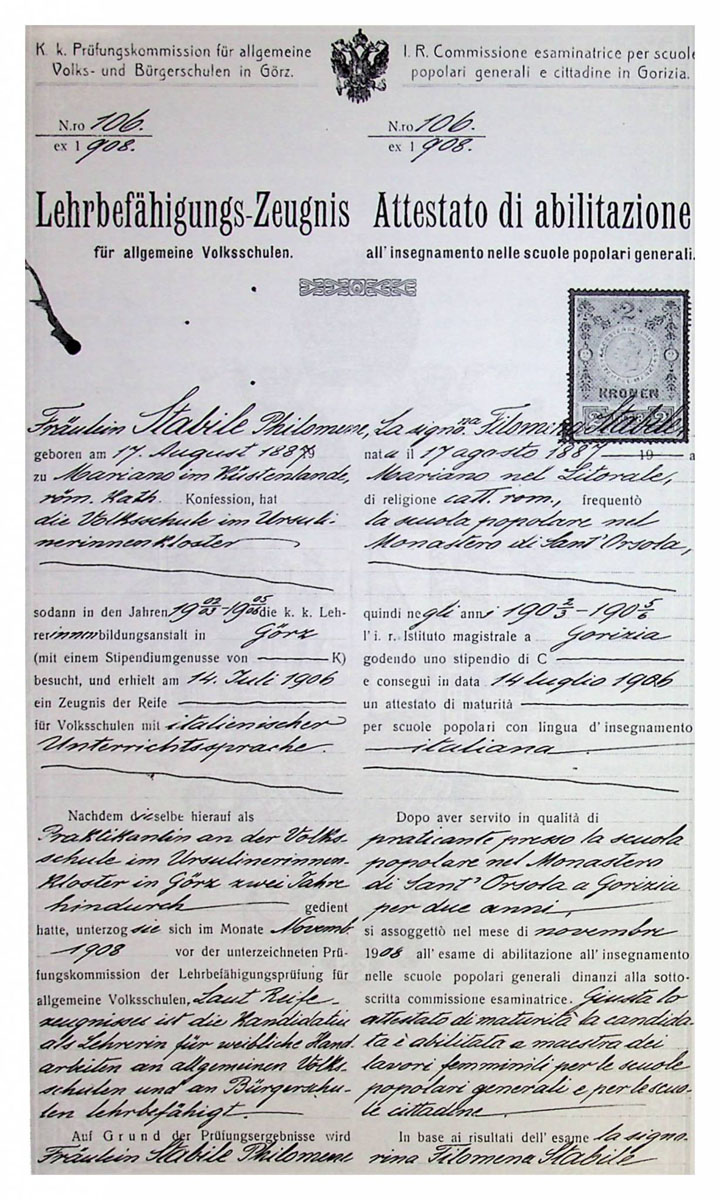 K. k. Prüfungskommission für allgemeine
Volks- und Bürgerschulen in Görz.
N.ro 106.
ex 1908.
Lehrbefähigungs-Zeugnis
für allgemeine Volksschulen.
Fräulein Stabile Philomene,
geboren am 17. August 1887
zu Mariano im Küstenlande,
röm. kath. Konfession, hat
die Volksschule im Ursuli-
nerinnenkloster
sodann in den Jahren 19 02/03 - 19 05/06 die k. k. Leh-
rerinnenbildungsanstalt in Görz
(mit einem Stipendiumgenusse von K)
besucht, und erhielt am 14. Juli 1906
ein Zeugnis der Reife
für Volksschulen mit italienischer
Unterrichtssprache.
Nachdem dieselbe hierauf als
Praktikantin an der Volks-
schule im Ursulinerinnen-
kloster in Görz zwei Jahre
hindurch gedient
hatte, unterzog sie sich im Monate Novemb.
1908 vor der unterzeichneten Prü-
fungskommission der Lehrbefähigungsprüfung für
allgemeine Volksschulen. Laut Reife-
zeugnisses ist die Kandidatin
als Lehrerin für weibliche Hand-
arbeiten an allgemeinen Volks-
schulen und an Bürgerschu-
len lehrbefähigt.
Auf Grund der Prüfungsergebnisse wird
Fräulein Stabile Philomene
I. R. Commissione esaminatrice per scuole
popolari generali e cittadine in Gorizia.
N.ro 106.
ex 1908.
Attestato di abilitazione
all'insegnamento nelle scuole popolari generali.
2
KRONEN
La signo.na Filomena Stabile
nata il 17 agosto 1887 19 a
Mariano nel Litorale,
di religione catt. rom., frequentò
la scuola popolare nel
Monastero di Sant' Orsola,
quindi negli anni 190 2/3 - 190 5/6
l'i. r. Istituto magistrale a Gorizia
godendo uno stipendio di C
e conseguì in data 14 luglio 1906
un attestato di maturità
per scuole popolari con lingua d'insegnamento
italiana.
Dopo aver servito in qualità di
praticante presso la scuola
popolare nel Monastero
di Sant' Orsola a Gorizia
per due anni,
si assoggettò nel mese di novembre
1908 all'esame di abilitazione all'insegnamento
nelle scuole popolari generali dinanzi alla sotto-
scritta commissione esaminatrice. Giusta lo
attestato di maturità la candida-
ta è abilitata a maestra dei
lavori femminili per le scuole
popolari generali e per le scuo-
le cittadine
In base ai risultati dell'esame la signo-
rina Filomena Stabile